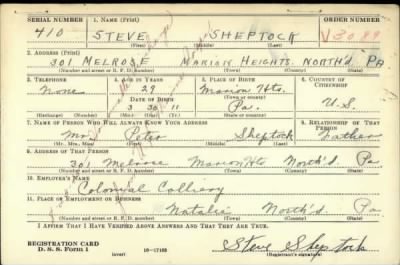 SERIAL NUMBER 1. NAME (Print) ORDER NUMBER
410 STEVE SHEPTOCK V3089
(First) (Middle) (Last)
2. ADDRESS (Print)
301 MELROSE MARION HEIGHTS. NORTH'D PA
(Number and street or R. F. D. number) (Town) (County) (State)
3. TELEPHONE 4. AGE IN YEARS 5. PLACE OF BIRTH 6. COUNTRY OF CITIZENSHIP
None 29 Marion Hts.
DATE OF BIRTH
3 30 11 Pa. U.S.
(Exchange) (Number) (Mo.) (Day) (Yr.) (State or country)
7. NAME OF PERSON WHO WILL ALWAYS KNOW YOUR ADDRESS 8. RELATIONSHIP OF THAT PERSON
Mr. Peter Sheptock Father
(Mr., Mrs., Miss) (First) (Middle) (Last)
9. ADDRESS OF THAT PERSON
301 Melrose Marion Hts North'd. Pa.
(Number and street or R. F. D. number) (Town) (County) (State)
10. EMPLOYER'S NAME
Colonial Colliery
11. PLACE OF EMPLOYMENT OR BUSINESS
Natalie North'd. Pa
(Number and street or R. F. D. number) (Town) (County) (State)
I AFFIRM THAT I HAVE VERIFIED ABOVE ANSWERS AND THAT THEY ARE TRUE.
REGISTRATION CARD
D. S. S. Form 1 (over) Steve Sheptock
(Registrant's signature)